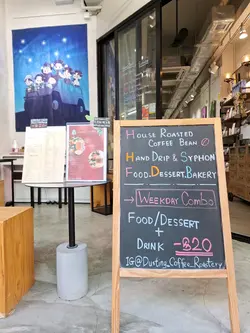 House Roasted
Coffee Bean
Hand Drip & Syphon
Food. Dessert. Bakery
→ Weekday Combo
Food/Dessert
+
Drink -฿20
IG@Dusting_Coffee_Roastery